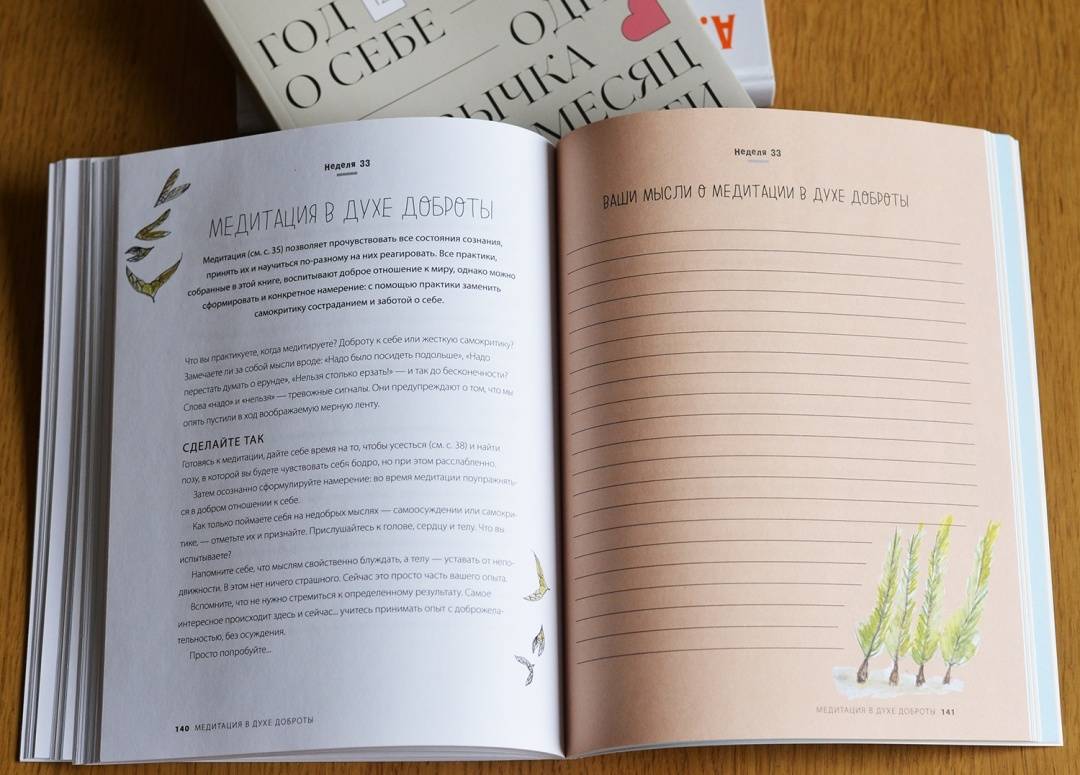 ГОД
О СЕБЕ
ОДН
ВЫЧКА
МЕСЯЦ
А.
Неделя 33
МЕДИТАЦИЯ В ДУХЕ ДОБРОТЫ
Медитация (см. с. 35) позволяет прочувствовать все состояния сознания,
принять их и научиться по-разному на них реагировать. Все практики,
собранные в этой книге, воспитывают доброе отношение к миру, однако можно
сформировать и конкретное намерение: с помощью практики заменить
самокритику состраданием и заботой о себе.
Что вы практикуете, когда медитируете? Доброту к себе или жесткую самокритику?
Замечаете ли за собой мысли вроде: «Надо было посидеть подольше», «Надо
перестать думать о ерунде», «Нельзя столько ерзать!» — и так до бесконечности?
Слова «надо» и «нельзя» — тревожные сигналы. Они предупреждают о том, что мы
опять пустили в ход воображаемую мерную ленту.
СДЕЛАЙТЕ ТАК
Готовясь к медитации, дайте себе время на то, чтобы усесться (см. с. 38) и найти
позу, в которой вы будете чувствовать себя бодро, но при этом расслабленно.
Затем осознанно сформулируйте намерение: во время медитации поупражнять-
ся в добром отношении к себе.
Как только поймаете себя на недобрых мыслях — самоосуждении или самокри-
тике, — отметьте их и признайте. Прислушайтесь к голове, сердцу и телу. Что вы
испытываете?
Напомните себе, что мыслям свойственно блуждать, а телу — уставать от непо-
движности. В этом нет ничего страшного. Сейчас это просто часть вашего опыта.
Вспомните, что не нужно стремиться к определенному результату. Самое
интересное происходит здесь и сейчас... учитесь принимать опыт с доброжела-
тельностью, без осуждения.
Просто попробуйте...
140 МЕДИТАЦИЯ В ДУХЕ ДОБРОТЫ
Неделя 33
ВАШИ МЫСЛИ О МЕДИТАЦИИ В ДУХЕ ДОБРОТЫ
МЕДИТАЦИЯ В ДУХЕ ДОБРОТЫ 141